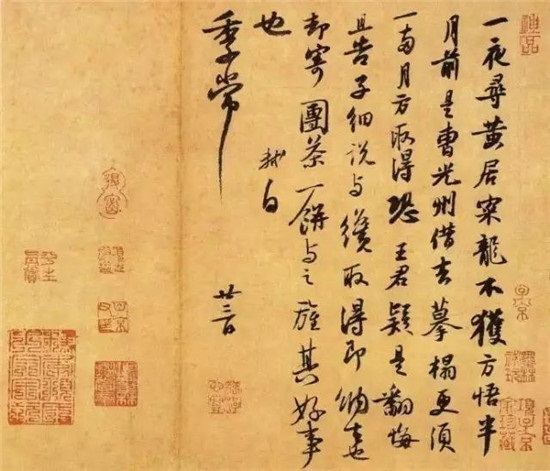 一夜尋黃居寀龍不獲方悟半
月前是曹光州借去摹搨更須
一兩月方取得恐王君疑是翻悔
且告子細說與纔取得即納去也
却寄團茶一餅與之旌其好事
也 軾白
季常 廿三日